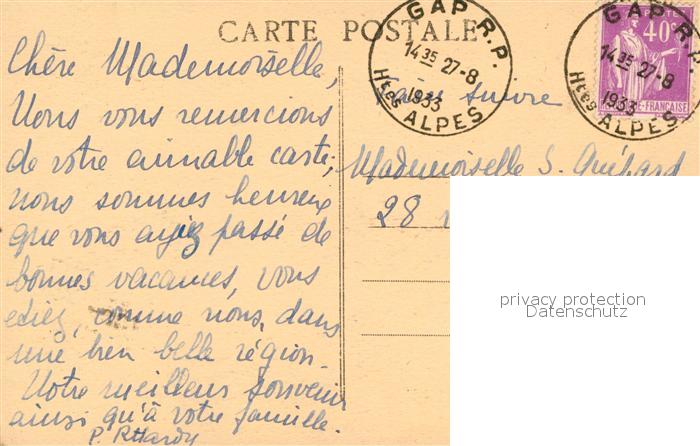 CARTE POSTALE
GAP R.P.
14 35 27-8
1933
Htes ALPES
GAP R.P.
14 35 27-8
1933
Htes ALPES
POSTES
40c
FRANÇAISE
Chère Mademoiselle,
Nous vous remercions
de votre aimable carte,
nous sommes heureux
que vous ayiez passé de
bonnes vacances, vous
étiez, comme nous, dans
une bien belle région.
Notre meilleur souvenir
ainsi qu'à votre famille.
P. R Hardy
Faire suivre
Mademoiselle S. Guépard
28
privacy protection
Datenschutz